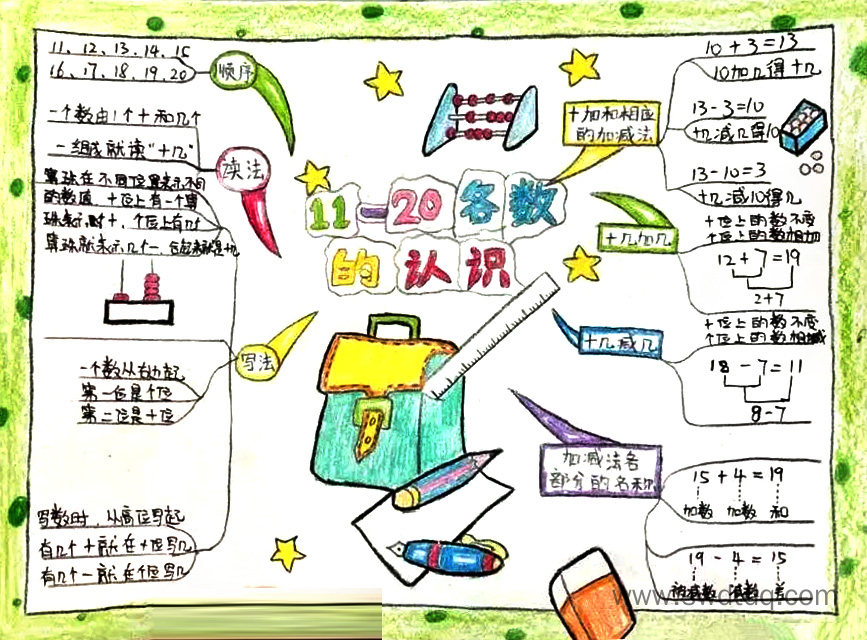 11-20各数
的认识
顺序
11、12、13、14、15
16、17、18、19、20
读法
一个数由1个十和几个
一组成就读“十几”
算珠在不同位置表示不同
的数值,十位上有一个算
珠表示1个十,个位上有几个
算珠就表示几个一,合起来就是十几
写法
一个数从右边起
第一位是个位
第二位是十位
写数时,从高位写起
有几个十就在十位写几
有几个一就在个位写几
十加和相应
的加减法
10+3=13
10加几得十几
13-3=10
十几减几得10
13-10=3
十几减10得几
十几加几
十位上的数不变
个位上的数相加
12+7=19
2+7
十几减几
十位上的数不变
个位上的数相减
18-7=11
8-7
加减法各
部分的名称
15+4=19
加数 加数 和
19-4=15
被减数 减数 差